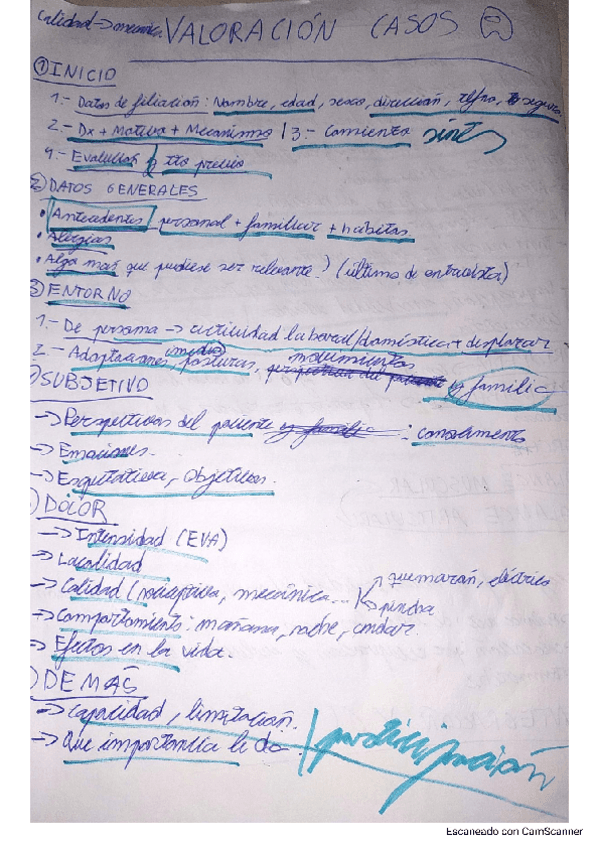 Calidad → mecánica. VALORACIÓN CASOS
① INICIO
1.- Datos de filiación: Nombre, edad, sexo, dirección, tlfno, seguro.
2.- Dx + Motivo + Mecanismo / 3.- Comienzo
4.- Evolución y tto previo
② DATOS GENERALES
• Antecedentes personal + familiar + hábitos
• Alergias
• Algo más que pudiese ser relevante? (último de entrevista)
③ ENTORNO
1.- De persona → actividad laboral/doméstica + desplazar
2.- Adaptaciones, posturas, movimientos y familia
) SUBJETIVO
→ Perspectivas del paciente y familia : conocimiento
→ Emociones.
→ Expectativa, objetivos.
) DOLOR
→ Intensidad (EVA)
→ Localidad
→ Calidad (nociceptiva, mecánica... → quemazón, eléctrico
→ pincha
→ Comportamiento: mañana, noche, andar.
→ Efectos en la vida.
) DEMÁS
→ Capacidad, limitación.
→ Que importancia le da. participación
Escaneado con CamScanner